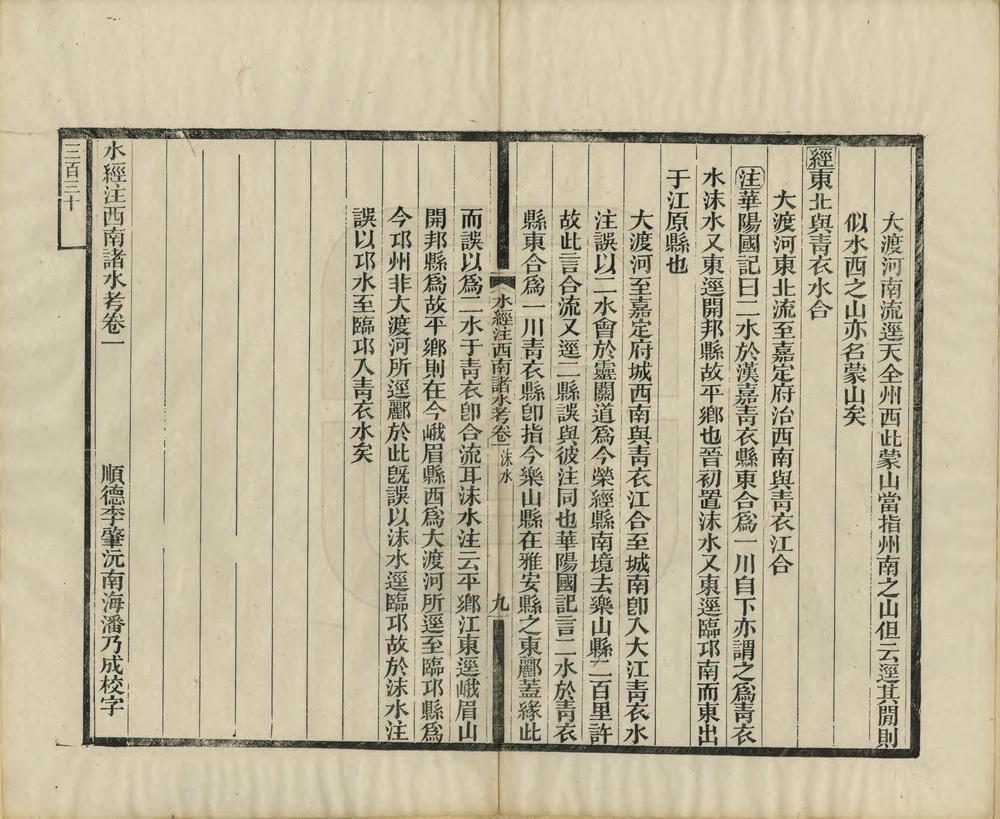 大渡河南流逕天全州西此蒙山當指州南之山但云逕其閒則
似水西之山亦名蒙山矣
經東北與靑衣水合
大渡河東北流至嘉定府治西南與靑衣江合
注華陽國記曰二水於漢嘉靑衣縣東合爲一川自下亦謂之爲靑衣
水沫水又東逕開邦縣故平鄉也晉初置沫水又東逕臨邛南而東出
于江原縣也
大渡河至嘉定府城西南與靑衣江合至城南卽入大江靑衣水
注誤以二水會於靈關道爲今榮經縣南境去樂山縣二百里許
故此言合流又逕二縣誤與彼注同也華陽國記言二水於靑衣
縣東合爲一川靑衣縣卽指今樂山縣在雅安縣之東酈蓋緣此
水經注西南諸水考卷一 沫水 九
而誤以爲二水于靑衣卽合流耳沫水注云平鄉江東逕峨眉山
開邦縣爲故平鄉則在今峨眉縣西爲大渡河所逕至臨邛縣爲
今邛州非大渡河所逕酈於此旣誤以沫水逕臨邛故於沫水注
誤以邛水至臨邛入靑衣水矣
水經注西南諸水考卷一
順德李肇沅南海潘乃成校字
三百三十